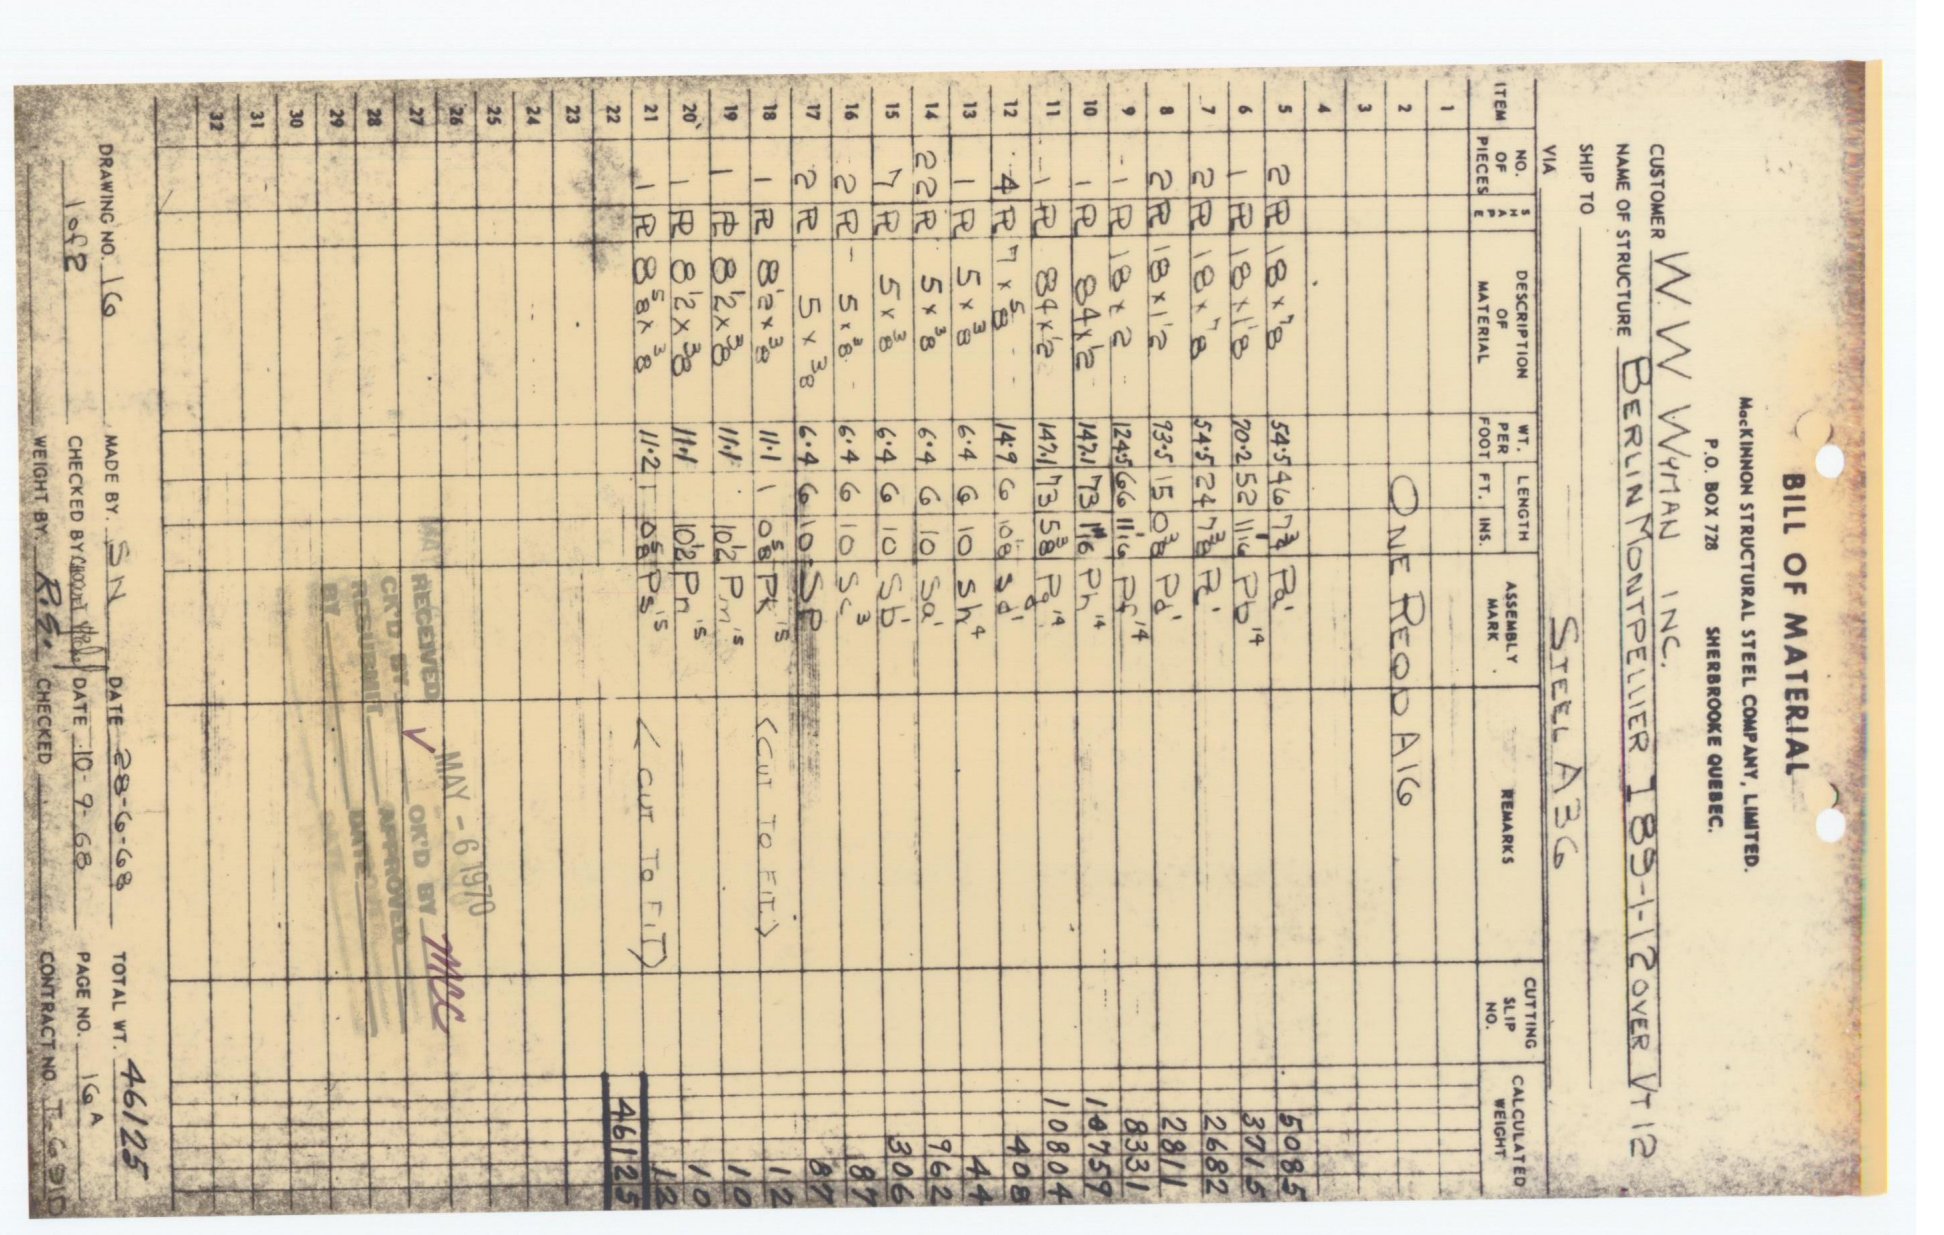 BILL OF MATERIAL
MacKINNON STRUCTURAL STEEL COMPANY, LIMITED.
P.O. BOX 728 SHERBROOKE QUEBEC.
CUSTOMER W. W WYMAN INC.
NAME OF STRUCTURE BERLIN MONTPELLIER I 89-1-12 OVER VT 12
SHIP TO
VIA STEEL A36
ITEM NO. OF PIECES SHAPE DESCRIPTION OF MATERIAL WT. PER FOOT LENGTH FT. INS. ASSEMBLY MARK REMARKS CUTTING SLIP NO. CALCULATED WEIGHT
1
2 ONE REQD A16
3
4
5 2 PL 18 x 7/8 54.5 46 7 3/4 Pa' 5085
6 1 PL 18 x 1 1/8 70.2 52 11 1/16 Pb'14 3715
7 2 PL 18 x 7/8 54.5 24 7 3/8 Pc' 2682
8 2 PL 18 x 1 1/2 93.5 15 0 3/8 Pd' 2811
9 1 PL 18 x 2 124.5 66 11 1/16 Pf'14 8331
10 1 PL 84 x 1/2 147.1 73 1/16 Ph'14 10759
11 1 PL 84 x 1/2 147.1 73 5 3/8 Pg'14 10804
12 4 PL 7 x 5/8 14.9 6 10 1/8 Sd' 408
13 1 PL 5 x 3/8 6.4 6 10 Sh4 44
14 22 PL 5 x 3/8 6.4 6 10 Sa' 962
15 7 PL 5 x 3/8 6.4 6 10 Sb' 306
16 2 PL 5 x 3/8 6.4 6 10 Sc3 87
17 2 PL 5 x 3/8 6.4 6 10 SP 87
18 1 PL 8 1/2 x 3/8 11.1 1 0 5/8 Pk'15 <CUT TO FIT> 12
19 1 PL 8 1/2 x 3/8 11.1 10 1/2 Pm'15 10
20 1 PL 8 1/2 x 3/8 11.1 10 1/2 Pn'15 10
21 1 PL 8 5/8 x 3/8 11.2 1 0 5/8 Ps'15 <CUT TO FIT> 12
22 46125
23
24
25
26 MAY - 6 1970
27 RECEIVED OK'D BY MCC
28 CK'D BY APPROVED
RESUBMIT DATE
29 BY DATE
30
31
32
DRAWING NO. 16 MADE BY. SN DATE 28-6-68 TOTAL WT. 46125
1 of 2 CHECKED BY DATE 10-9-68 PAGE NO. 16 A
WEIGHT BY. R.S. CHECKED CONTRACT NO.